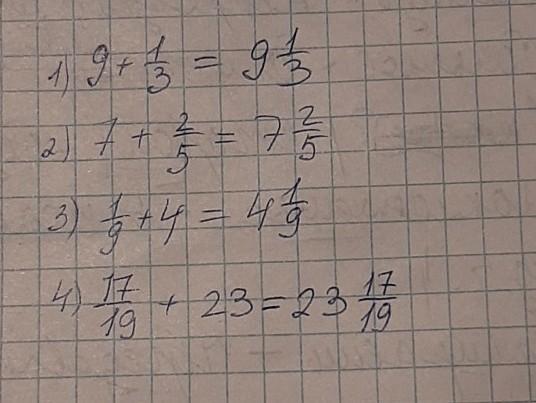 1) 9 + 1/3 = 9 1/3
2) 7 + 2/5 = 7 2/5
3) 1/9 + 4 = 4 1/9
4) 17/19 + 23 = 23 17/19